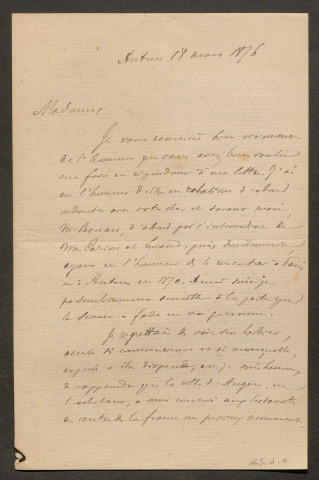 Autun 18 mars 1876
Madame
Je vous remercie bien vivement
de l'honneur que vous avez bien voulu
me faire en répondant à ma lettre. J'ai
eu l'honneur d'être en relations d'abord
indirectes avec votre cher et savant mari,
Mr Boreau, d'abord par l'intermédiaire de
MM. Carion et Grand; puis directement
ayant eu l'honneur de le rencontrer à
et à Autun en 1870. Aussi suis-je
personnellement sensible à la perte que
la science a faite en sa personne.
Je regrettais de voir son herbier,
aussi si consciencieux et si
exposé à être dispersé, et je suis heureux
d'apprendre que la ville d'Angers, en
l'achetant, a ainsi conservé aux botanistes
du centre de la france un précieux monument.